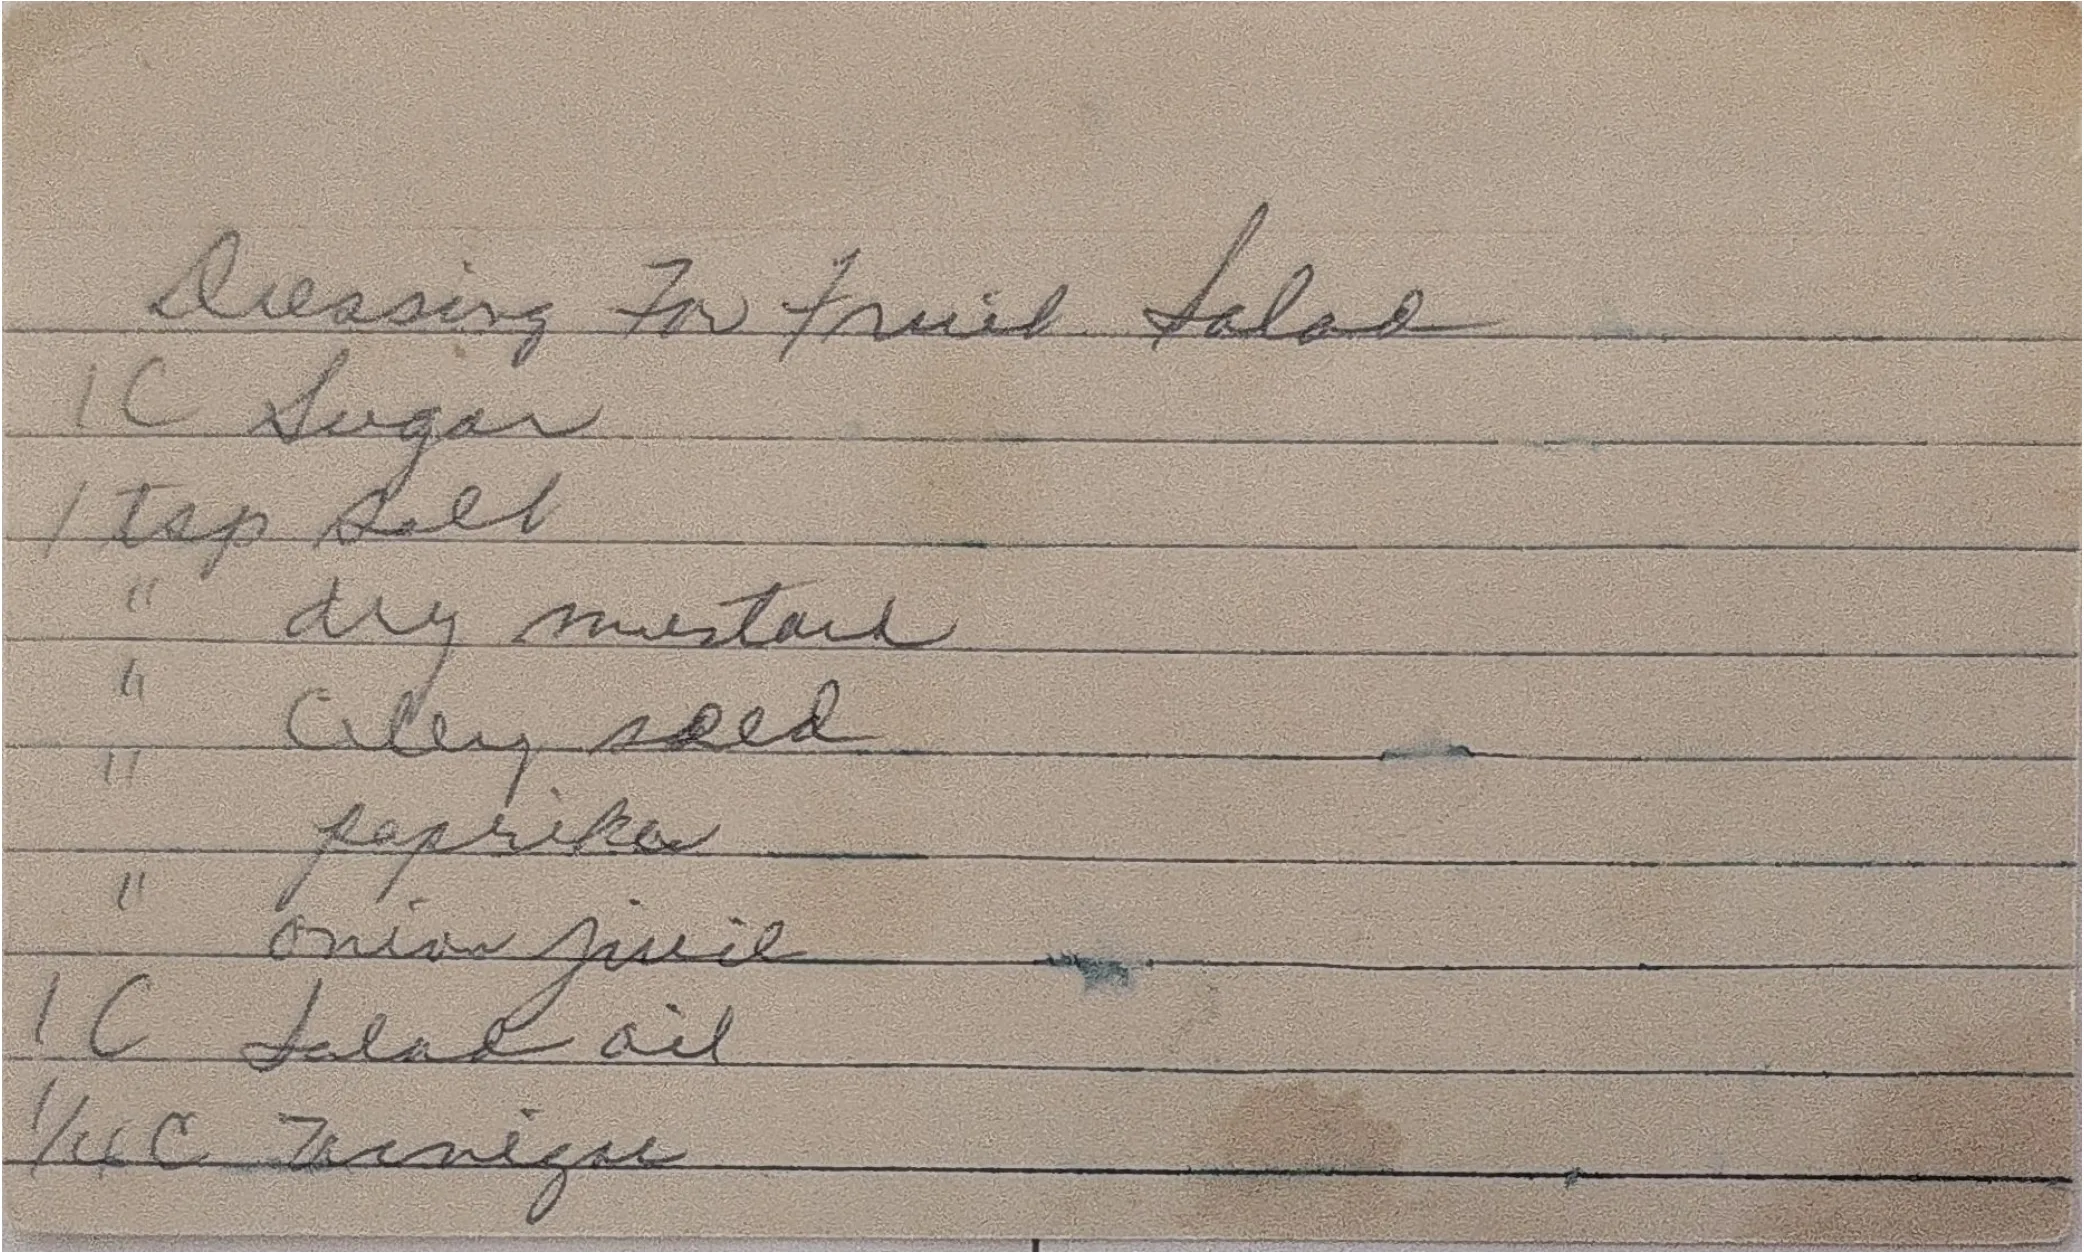 Dressing For Fruit Salad
1 C Sugar
1 tsp Salt
" dry mustard
" Celery seed
" paprika
" onion juice
1 C Salad oil
1/4 C Vinegar